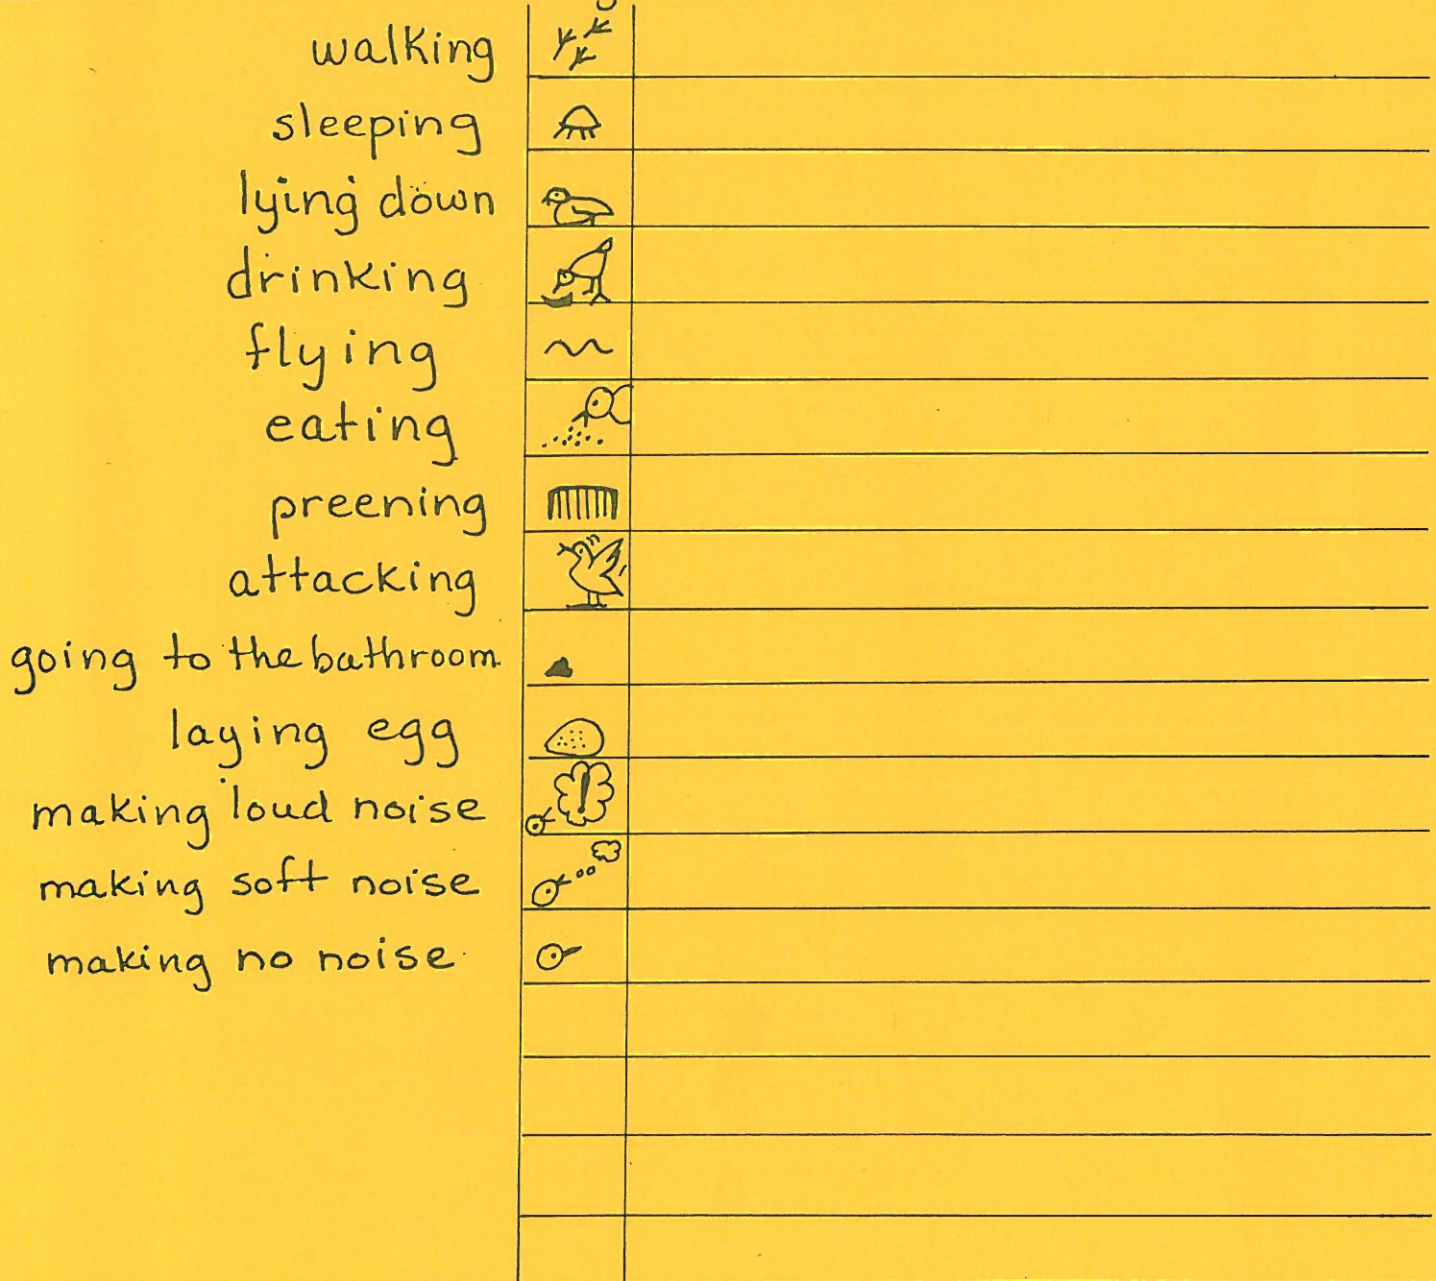 walking
sleeping
lying down
drinking
flying
eating
preening
attacking
going to the bathroom
laying egg
making loud noise
making soft noise
making no noise